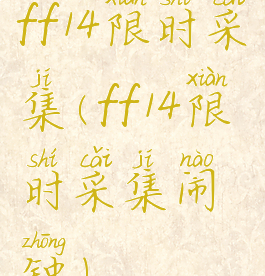 xiàn shí cǎi
ff14限时采
jí xiàn
集(ff14限
shí cǎi jí nào
时采集闹
zhōng
钟)